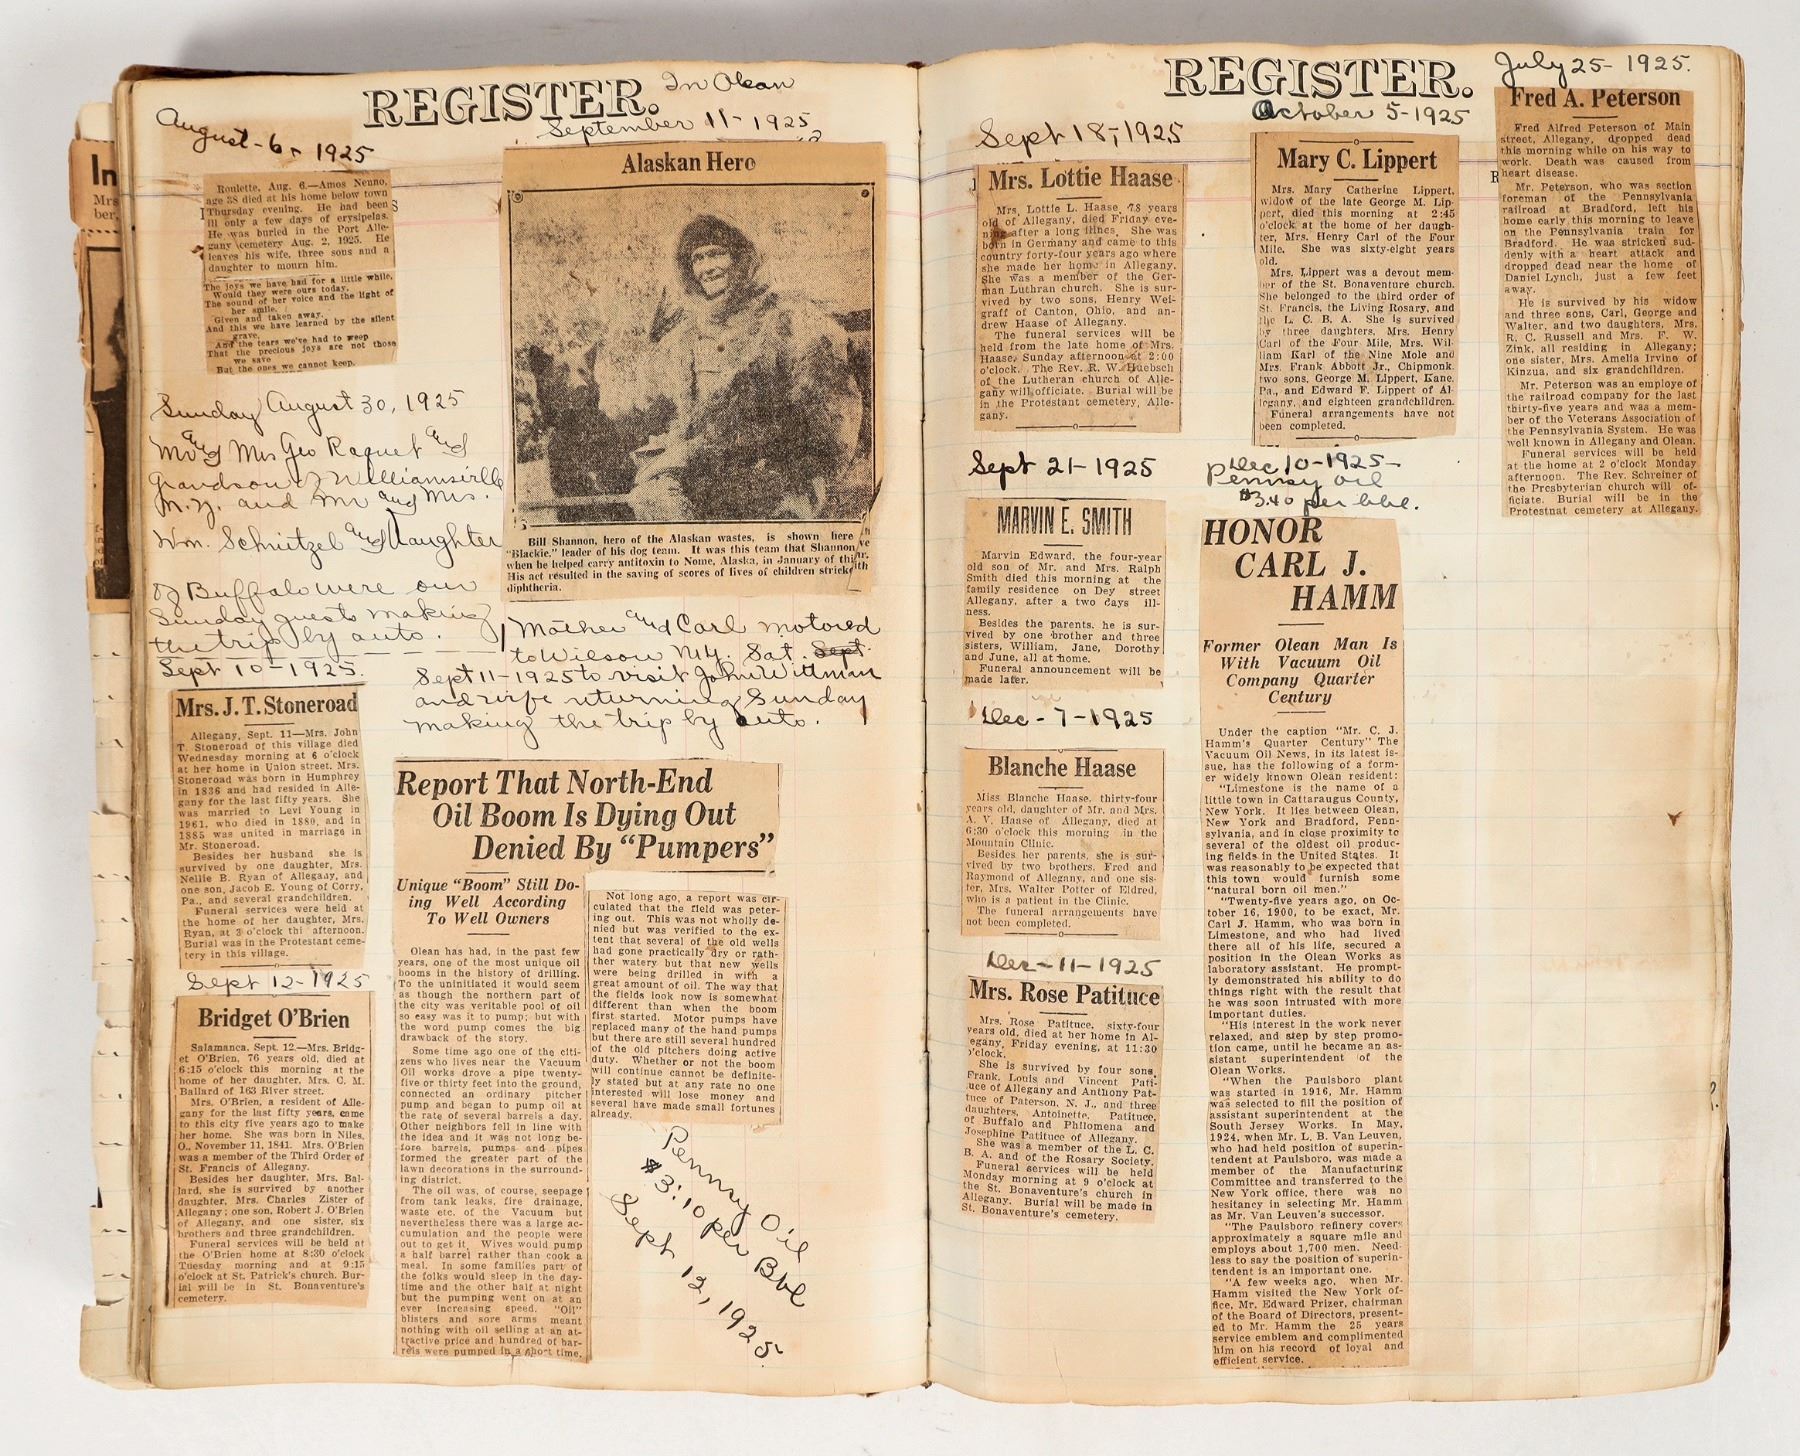 REGISTER.
In Olean
September 11-1925
August-6-1925
Roulette, Aug. 6.—Amos Nenno,
age 38 died at his home below town
Thursday evening. He had been
ill only a few days of erysipelas.
He was buried in the Port Alle-
gany cemetery Aug. 2, 1925. He
leaves his wife, three sons and a
daughter to mourn him.
The joys we have had for a little while,
Would they were ours today.
The sound of her voice and the light of
her smile.
Given and taken away.
And this we have learned by the silent
grave,
And the tears we've had to weep
That the precious joys are not those
we save
But the ones we cannot keep.
Sunday August 30, 1925
Mr and Mrs Geo Raquet and
grandson of Williamsville
N.Y. and Mr and Mrs.
Wm. Schnitzel and Daughter
of Buffalo were our
Sunday guests making
the trip by auto.
Sept 10-1925.
Mrs. J. T. Stoneroad
Allegany, Sept. 11—Mrs. John
T. Stoneroad of this village died
Wednesday morning at 6 o'clock
at her home in Union street. Mrs.
Stoneroad was born in Humphrey
in 1836 and had resided in Alle-
gany for the last fifty years. She
was married to Levi Young in
1961, who died in 1880, and in
1885 was united in marriage in
Mr. Stoneroad.
Besides her husband she is
survived by one daughter, Mrs.
Nellie B. Ryan of Allegany, and
one son, Jacob E. Young of Corry,
Pa., and several grandchildren.
Funeral services were held at
the home of her daughter, Mrs.
Ryan, at 3 o'clock thi afternoon.
Burial was in the Protestant ceme-
tery in this village.
Sept 12-1925
Bridget O'Brien
Salamanca, Sept. 12.—Mrs. Bridg-
et O'Brien, 76 years old, died at
6:15 o'clock this morning at the
home of her daughter, Mrs. C. M.
Ballard of 163 River street.
Mrs. O'Brien, a resident of Alle-
gany for the last fifty years, came
to this city five years ago to make
her home. She was born in Niles,
O., November 11, 1841. Mrs. O'Brien
was a member of the Third Order of
St. Francis of Allegany.
Besides her daughter, Mrs. Bal-
lard, she is survived by another
daughter, Mrs. Charles Zister of
Allegany; one son, Robert J. O'Brien
of Allegany, and one sister, six
brothers and three grandchildren.
Funeral services will be held at
the O'Brien home at 8:30 o'clock
Tuesday morning and at 9:15
o'clock at St. Patrick's church. Bur-
ial will be in St. Bonaventure's
cemetery.
Alaskan Hero
Bill Shannon, hero of the Alaskan wastes, is shown here
"Blackie," leader of his dog team. It was this team that Shannon
when he helped carry antitoxin to Nome, Alaska, in January of this
His act resulted in the saving of scores of lives of children strick
diphtheria.
Mother and Carl motored
to Wilson N.Y. Sat. Sept
Sept 11-1925 to visit John Wittman
and wife returning Sunday
making the trip by auto.
Report That North-End
Oil Boom Is Dying Out
Denied By "Pumpers"
Unique "Boom" Still Do-
ing Well According
To Well Owners
Olean has had, in the past few
years, one of the most unique oil
booms in the history of drilling.
To the uninitiated it would seem
as though the northern part of
the city was veritable pool of oil
so easy was it to pump; but with
the word pump comes the big
drawback of the story.
Some time ago one of the citi-
zens who lives near the Vacuum
Oil works drove a pipe twenty-
five or thirty feet into the ground,
connected an ordinary pitcher
pump and began to pump oil at
the rate of several barrels a day.
Other neighbors fell in line with
the idea and it was not long be-
fore barrels, pumps and pipes
formed the greater part of the
lawn decorations in the surround-
ing district.
The oil was, of course, seepage
from tank leaks, fire drainage,
waste etc. of the Vacuum but
nevertheless there was a large ac-
cumulation and the people were
out to get it. Wives would pump
a half barrel rather than cook a
meal. In some families part of
the folks would sleep in the day-
time and the other half at night
but the pumping went on at an
ever increasing speed. "Oil"
blisters and sore arms meant
nothing with oil selling at an at-
tractive price and hundred of bar-
rels were pumped in a short time.
Not long ago, a report was cir-
culated that the field was peter-
ing out. This was not wholly de-
nied but was verified to the ex-
tent that several of the old wells
had gone practically dry or rath-
ther watery but that new wells
were being drilled in with a
great amount of oil. The way that
the fields look now is somewhat
different than when the boom
first started. Motor pumps have
replaced many of the hand pumps
but there are still several hundred
of the old pitchers doing active
duty. Whether or not the boom
will continue cannot be definite-
ly stated but at any rate no one
interested will lose money and
several have made small fortunes
already.
Penny Oil
$3.10 per Bbl
Sept 12, 1925.
REGISTER.
Sept 18-, 1925
Mrs. Lottie Haase
Mrs. Lottie L. Haase, 78 years
old of Allegany, died Friday eve-
ning after a long illnes. She was
born in Germany and came to this
country forty-four years ago where
she made her home in Allegany.
She was a member of the Ger-
man Luthran church. She is sur-
vived by two sons, Henry Wei-
graff of Canton, Ohio, and an-
drew Haase of Allegany.
The funeral services will be
held from the late home of Mrs.
Haase, Sunday afternoon at 2:00
o'clock. The Rev. R. W. Huebsch
of the Lutheran church of Alle-
gany will officiate. Burial will be
in the Protestant cemetery, Alle-
gany.
Sept 21-1925
MARVIN E. SMITH
Marvin Edward, the four-year
old son of Mr. and Mrs. Ralph
Smith died this morning at the
family residence on Dey street
Allegany, after a two days ill-
ness.
Besides the parents, he is sur-
vived by one brother and three
sisters, William, Jane, Dorothy
and June, all at home.
Funeral announcement will be
made later.
Dec-7-1925
Blanche Haase
Miss Blanche Haase, thirty-four
years old, daughter of Mr. and Mrs.
A. V. Haase of Allegany, died at
6:30 o'clock this morning in the
Mountain Clinic.
Besides her parents, she is sur-
vived by two brothers, Fred and
Raymond of Allegany, and one sis-
ter, Mrs. Walter Potter of Eldred,
who is a patient in the Clinic.
The funeral arrangements have
not been completed.
Dec-11-1925
Mrs. Rose Patituce
Mrs. Rose Patituce, sixty-four
years old, died at her home in Al-
egany, Friday evening, at 11:30
o'clock.
She is survived by four sons,
Frank, Louis and Vincent Pati-
tuce of Allegany and Anthony Pat-
tuce of Paterson, N. J., and three
daughters, Antoinette, Patituce,
of Buffalo and Philomena and
Josephine Patituce of Allegany.
She was a member of the L. C.
B. A. and of the Rosary Society.
Funeral services will be held
Monday morning at 9 o'clock at
the St. Bonaventure's church in
Allegany. Burial will be made in
St. Bonaventure's cemetery.
October 5-1925
Mary C. Lippert
Mrs. Mary Catherine Lippert,
widow of the late George M. Lip-
pert, died this morning at 2:45
o'clock at the home of her daugh-
ter, Mrs. Henry Carl of the Four
Mile. She was sixty-eight years
old.
Mrs. Lippert was a devout mem-
ber of the St. Bonaventure church.
She belonged to the third order of
St. Francis, the Living Rosary, and
the L. C. B. A. She is survived
by three daughters, Mrs. Henry
Carl of the Four Mile, Mrs. Wil-
liam Karl of the Nine Mole and
Mrs. Frank Abbott Jr., Chipmonk,
two sons, George M. Lippert, Kane,
Pa., and Edward F. Lippert of Al-
legany, and eighteen grandchildren.
Funeral arrangements have not
been completed.
Dec 10-1925-
Pennsy oil
$3.40 per bbl.
HONOR
CARL J.
HAMM
Former Olean Man Is
With Vacuum Oil
Company Quarter
Century
Under the caption "Mr. C. J.
Hamm's Quarter Century" The
Vacuum Oil News, in its latest is-
sue, has the following of a form-
er widely known Olean resident:
"Limestone is the name of a
little town in Cattaraugus County,
New York. It lies between Olean,
New York and Bradford, Penn-
sylvania, and in close proximity to
several of the oldest oil produc-
ing fields in the United States. It
was reasonably to be expected that
this town would furnish some
"natural born oil men."
"Twenty-five years ago, on Oc-
tober 16, 1900, to be exact, Mr.
Carl J. Hamm, who was born in
Limestone, and who had lived
there all of his life, secured a
position in the Olean Works as
laboratory assistant. He prompt-
ly demonstrated his ability to do
things right with the result that
he was soon intrusted with more
important duties.
"His interest in the work never
relaxed, and step by step promo-
tion came, until he became an as-
sistant superintendent of the
Olean Works.
"When the Paulsboro plant
was started in 1916, Mr. Hamm
was selected to fill the position of
assistant superintendent at the
South Jersey Works. In May,
1924, when Mr. L. B. Van Leuven,
who had held position of superin-
tendent at Paulsboro, was made a
member of the Manufacturing
Committee and transferred to the
New York office, there was no
hesitancy in selecting Mr. Hamm
as Mr. Van Leuven's successor.
"The Paulsboro refinery covers
approximately a square mile and
employs about 1,700 men. Need-
less to say the position of superin-
tendent is an important one.
"A few weeks ago, when Mr.
Hamm visited the New York of-
fice, Mr. Edward Prizer, chairman
of the Board of Directors, present-
ed to Mr. Hamm the 25 years
service emblem and complimented
him on his record of loyal and
efficient service.
July 25-1925.
Fred A. Peterson
Fred Alfred Peterson of Main
street, Allegany, dropped dead
this morning while on his way to
work. Death was caused from
heart disease.
Mr. Peterson, who was section
foreman of the Pennsylvania
railroad at Bradford, left his
home early this morning to leave
on the Pennsylvania train for
Bradford. He was stricken sud-
denly with a heart attack and
dropped dead near the home of
Daniel Lynch, just a few feet
away.
He is survived by his widow
and three sons, Carl, George and
Walter, and two daughters, Mrs.
R. C. Russell and Mrs. F. W.
Zink, all residing in Allegany;
one sister, Mrs. Amelia Irvine of
Kinzua, and six grandchildren.
Mr. Peterson was an employe of
the railroad company for the last
thirty-five years and was a mem-
ber of the Veterans Association of
the Pennsylvania System. He was
well known in Allegany and Olean.
Funeral services will be held
at the home at 2 o'clock Monday
afternoon. The Rev. Schreiner of
the Presbyterian church will of-
ficiate. Burial will be in the
Protestnat cemetery at Allegany.